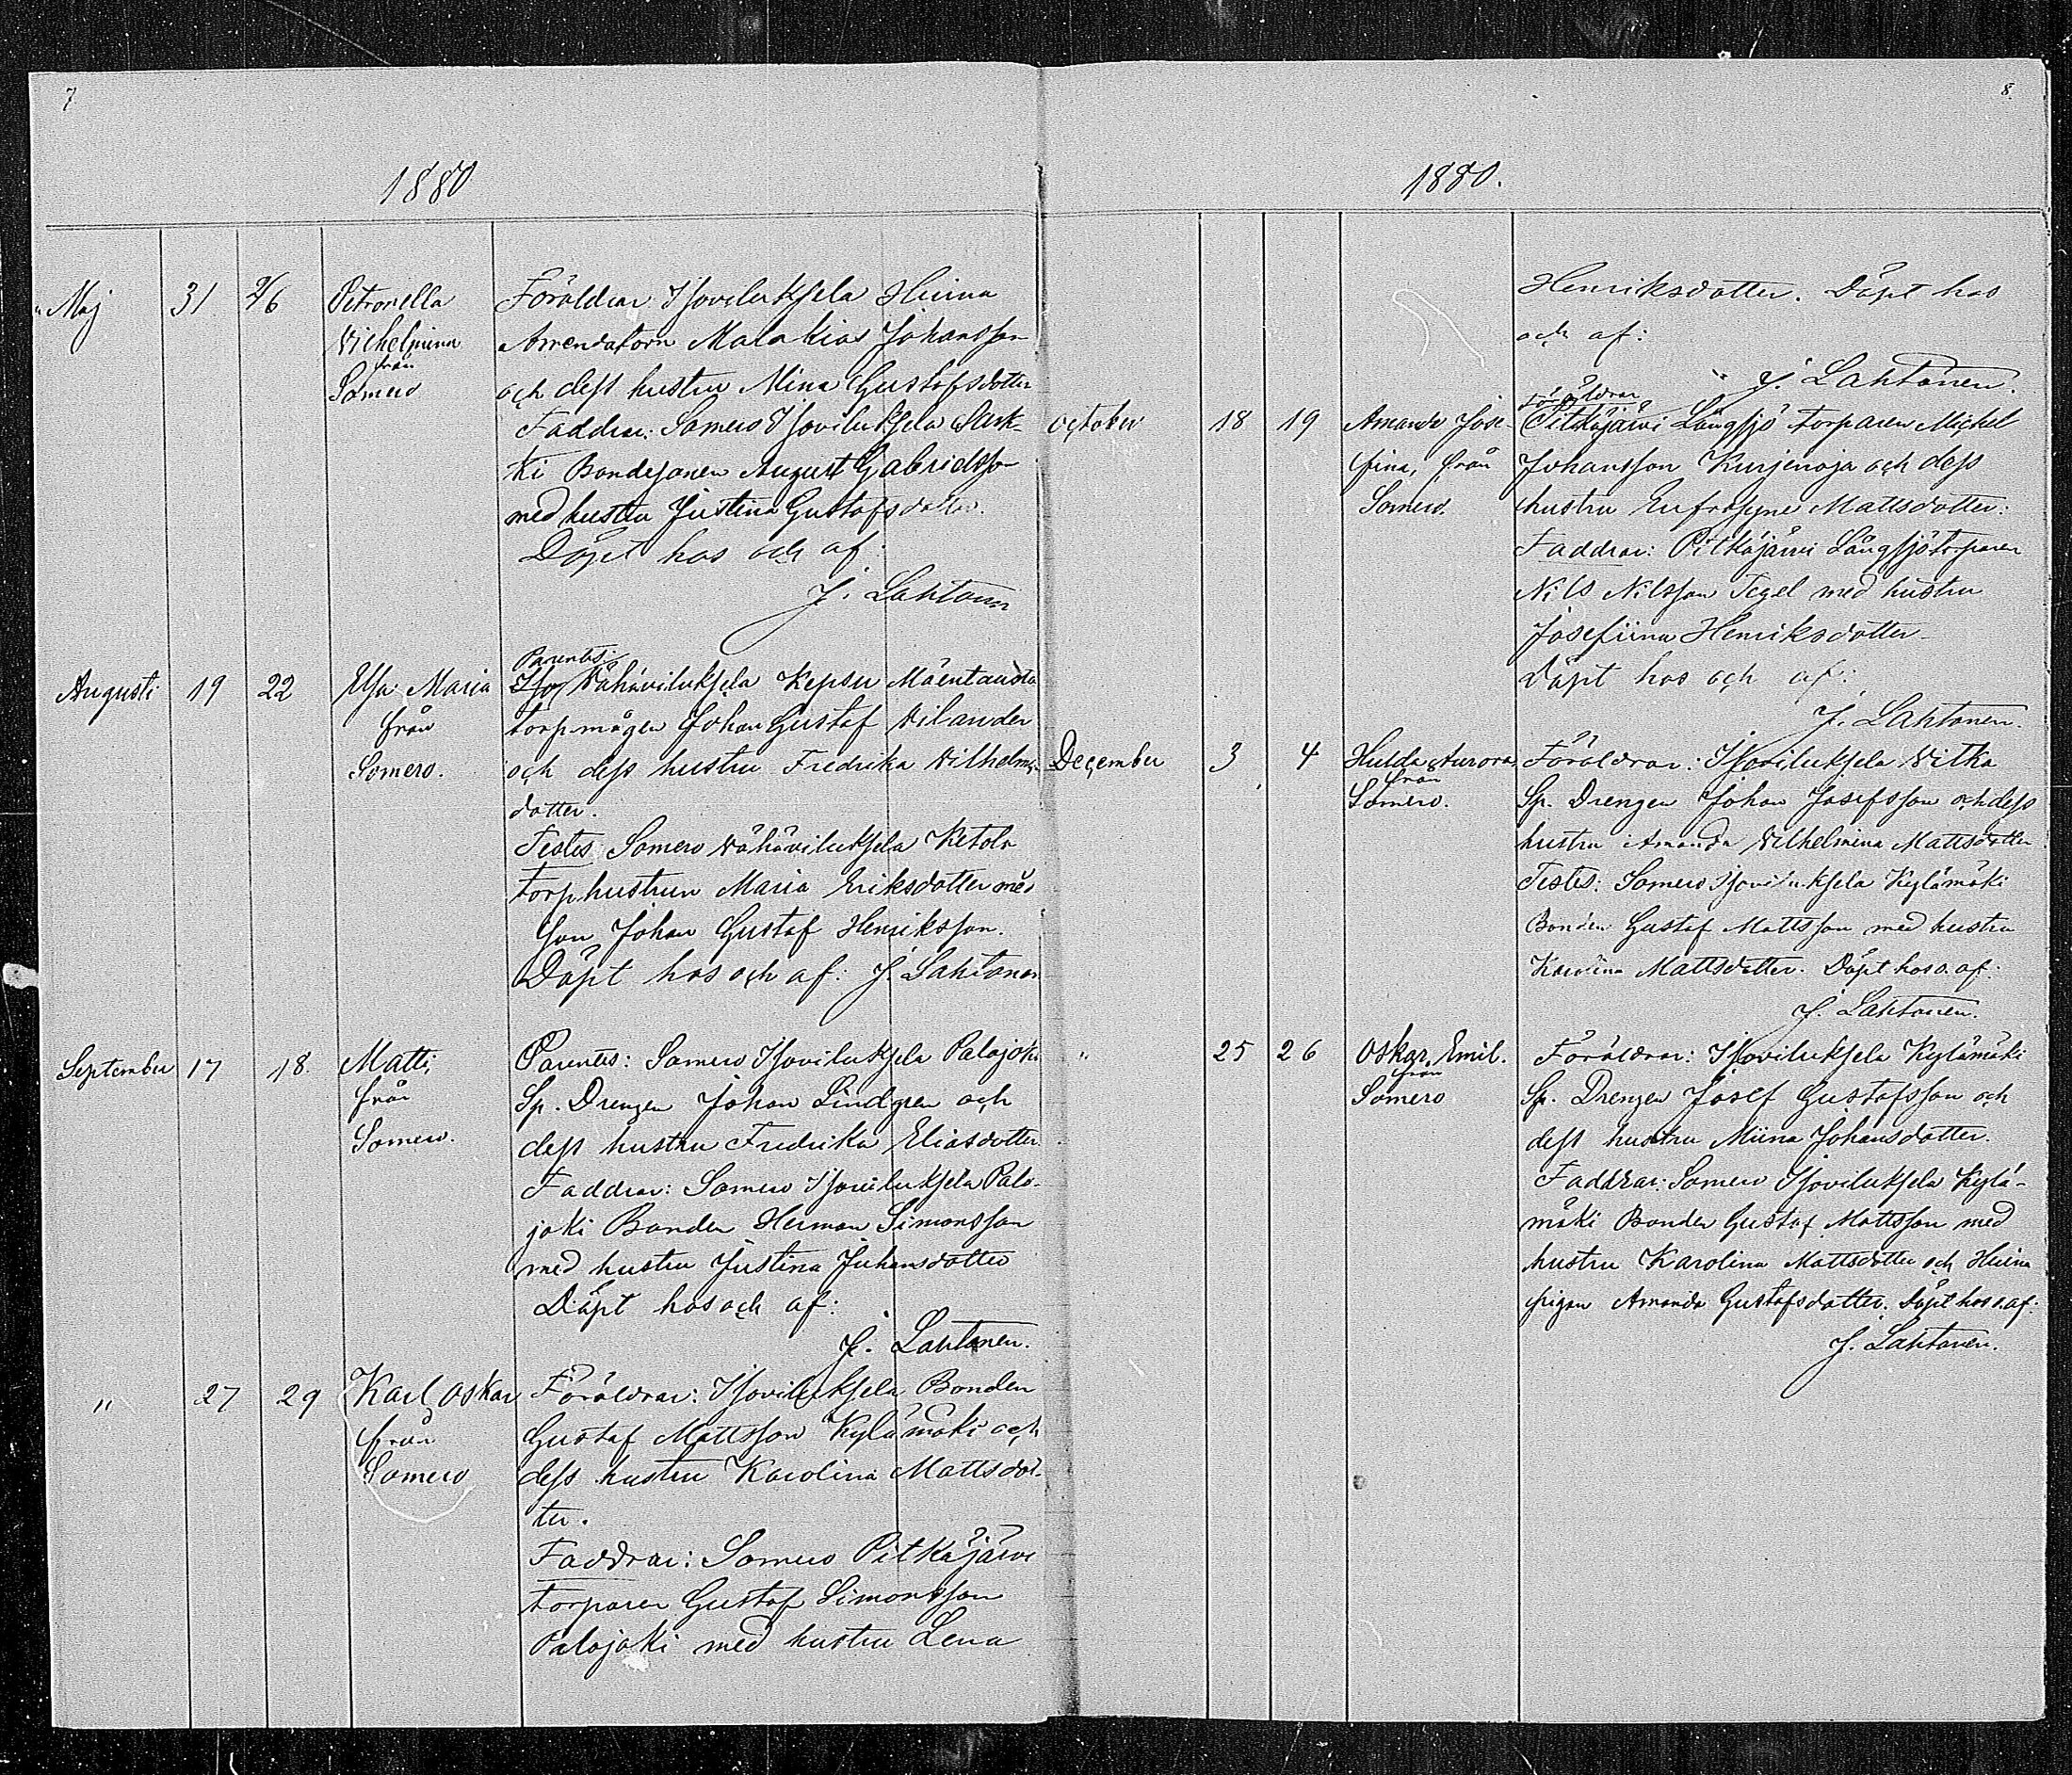 7
1880
Maj 31 2/6 Petronella Föräldrar: Isoviluksela Hiirna
Vilhelmina Arrendatorn Malakias Johansson
från
Somero och dess hustru Mina Gustafsdotter
Faddrar: Somero Isoviluksela Sark-
ki Bondesonen August Gabrielsson
med hustru Justina Gustafsdotter.
Döpt hos och af:
J. Lahtonen
Parentes:
Augusti 19 22 Elsa Maria Vähäviluksela Kepsu Mäentausta
från torpmågen Johan Gustaf Vilander
Somero. och dess hustru Fredrika Vilhelms-
dotter.
Testes Somero Vähäviluksela Ketola
Torp.hustrun Maria Eriksdotter med
son Johan Gustaf Henriksson.
Döpt hos och af: J. Lahtonen
September 17 18. Matti, Parentes: Somero Isoviluksela Palojoki
från Sp. Drengen Johan Lindgren och
Somero. dess hustru Fredrika Eliasdotter
Faddrar: Somero Isoviluksela Palo-
joki Bonden Herman Simonsson
med hustru Justina Juhansdotter
Döpt hos och af:
J. Lahtonen.
" 27 29 Karl Oskar Föräldrar: Isoviluksela Bonden
från Gustaf Mattsson Kylämäki och
Somero dess hustru Karolina Mattsdot-
ter.
Faddrar: Somero Pitkäjärvi
torparen Gustaf Simonsson
Palojoki med hustru Lena
8.
1880.
Henriksdotter. Döpt hos
och af:
J. Lahtonen.
Föräldrar
October 18 19 Amanda Jose- Pitkäjärvi Långsjö torparen Michel
fina, från Johansson Kurjenoja och dess
Somero. hustru Eufrosyne Mattsdotter:
Faddrar: Pitkäjärvi Långsjö torparen
Nils Nilsson Tegel med hustru
Josefiina Henriksdotter
Döpt hos och af:
J. Lahtonen.
December 3 4 Hulda Aurora Föräldrar: Isoviluksela Vitka
från
Somero. Sp. Drengen Johan Josefsson och dess
hustru Amanda Vilhelmina Mattsdotter
Testes: Somero Isoviluksela Kylämäki
Bonden Gustaf Mattsson med hustru
Karolina Mattsdotter. Döpt hos o. af:
J. Lahtonen.
" 25 26 Oskar Emil. Föräldrar: Isoviluksela Kylämäki
från
Somero Sp. Drengen Josef Gustafsson och
dess hustru Miina Johansdotter.
Faddrar: Somero Isoviluksela Kylä-
mäki Bonden Gustaf Mattsson med
hustru Karolina Mattsdotter och Hiirna
pigan Amanda Gustafsdotter. Döpt hos o. af:
J. Lahtonen.